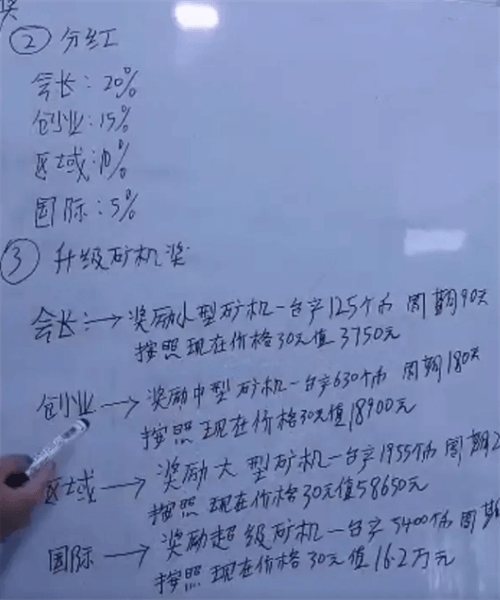 奖
② 分红
会长：20%
创业：15%
区域：10%
国际：5%
③ 升级矿机奖
会长：→ 奖励小型矿机一台产125个币 周期90天
按照现在价格30元值3750元
创业 → 奖励中型矿机一台产630个币 周期180天
按照现在价格30元值18900元
区域 → 奖励大型矿机一台产1955个币 周期2
按照现在价格30元值58650元
国际 → 奖励超级矿机一台产5400个币 周期
按照现在价格30元值16.2万元